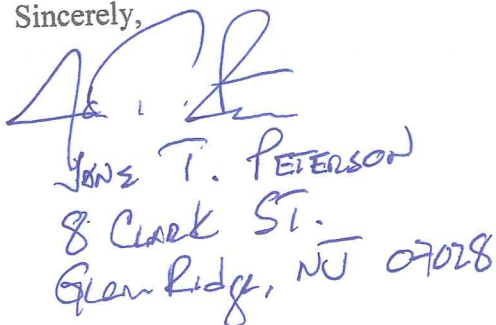 Sincerely,
T. PETERSON
8 CLARK ST.
Glen Ridge, NJ 07028